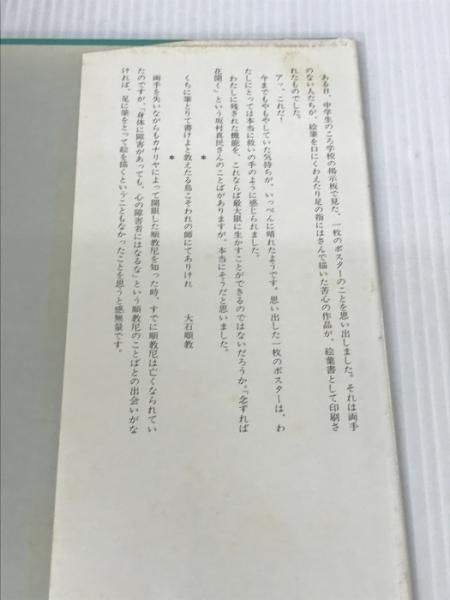 ある日、中学生のころ学校の掲示板で見た、一枚のポスターのことを思い出しました。それは両手
のない人たちが、絵筆を口にくわえたり足の指にはさんで描いた苦心の作品が、絵葉書として印刷さ
れたものでした。
アッ、これだ！
今までもやもやしていた気持ちが、いっぺんに晴れたようです。思い出した一枚のポスターは、わ
たしにとっては本当に救いの手のように感じられました。
わたしに残された機能を、これならば最大限に生かすことができるのではないだろうか。「念ずれば
花開く」という坂村真民さんのことばがありますが、本当にそうだと思いました。
＊
くちに筆とりて書けよと教えたる鳥こそわれの師にてありけれ　大石順教
＊
両手を失いながらもカナリヤによって開眼した順教尼を知った時、すでに順教尼は亡くなられてい
たのですが、「身体に障害があっても、心の障害者にはなるな」という順教尼のことばとの出会いがな
ければ、足に筆をとって絵を描くということもなかったことを思うと感無量です。